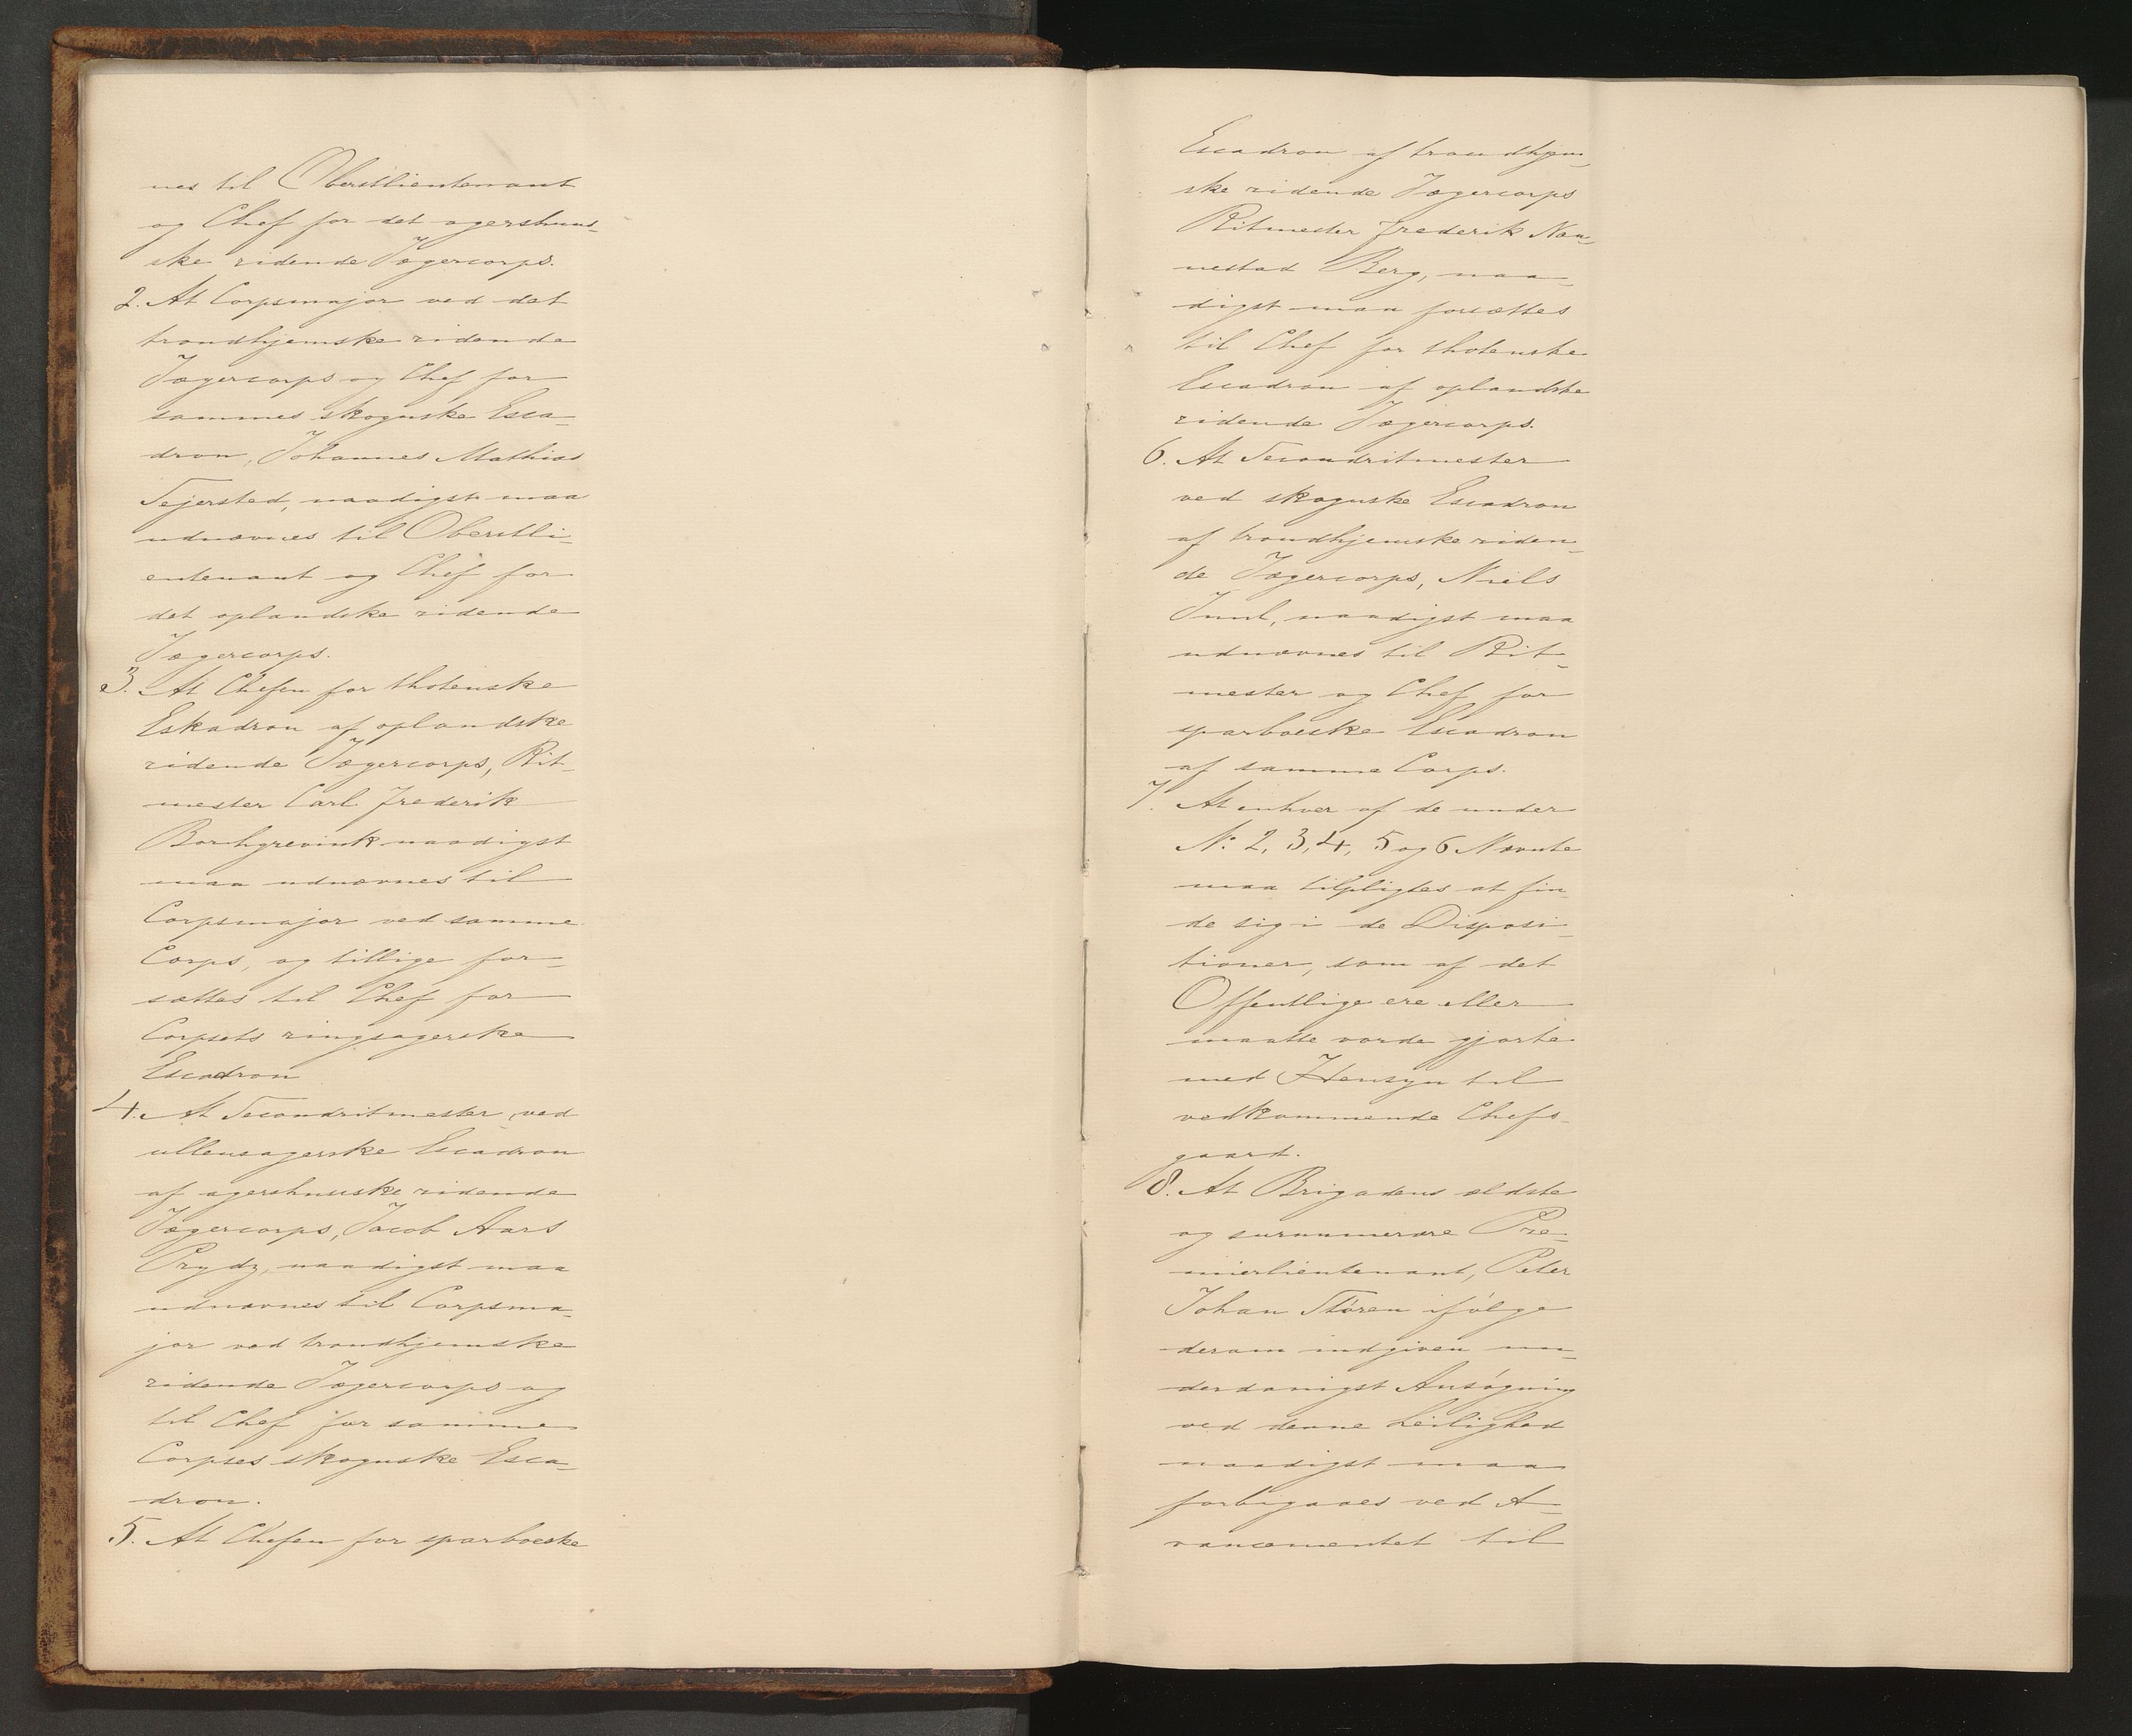 nes til Oberstlieutenant
og Chef for det agershuus-
ske ridende Jægercorps.
2. At Corpsmajor ved det
trondhjemske ridende
Jægercorps og Chef for
sammes skognske Esca-
dron, Johannes Mathias
Sejersted, naadigst maa
udnævnes til Oberstli-
eutenant og Chef for
det oplandske ridende
Jægercorps.
3. At Chefen for thotenske
Eskadron af oplandske
ridende Jægercorps, Rit-
mester Carl Frederik
Borchgrevink naadigst
maa udnævnes til
Corpsmajor ved samme
Corps, og tillige for-
sættes til Chef for
Corpsets ringsagerske
Escadron
4. At Secondritmester ved
ullensagerske Escadron
af agershuuske ridende
Jægercorps, Jacob Aars
Prydz, naadigst maa
udnævnes til Corpsma-
jor ved trondhjemske
ridende Jægercorps og
til Chef for samme
Corpses skognske Esca-
dron.
5. At Chefen for sparboeske
Escadron af trondhjem-
ske ridende Jægercorps
Ritmester Frederik Nan-
nestad Berg, naa-
digst maa forsættes
til Chef for thotenske
Escadron af oplandske
ridende Jægercorps.
6. At Secondritmester
ved skognske Escadron
af trondhjemske riden-
de Jægercorps, Niels
Juul, naadigst maa
udnævnes til Rit-
mester og Chef for
sparboeske Escadron
af samme Corps.
7. At enhver af de under
No 2, 3, 4, 5 og 6 Nævnte
maa tilpligtes at fin-
de sig i de Disposi-
tioner, som af det
Offentlige ere eller
maatte vorde gjorte
med Hensyn til
vedkommende Chefs-
gaard.
8. At Brigadens ældste
og surnumerære Pre-
mierlieutenant, Peter
Johan Støren ifølge
derom indgiven un-
derdanigst Ansøgning
ved denne Leilighed
naadigst maa
forbigaaes ved A-
vancementet til